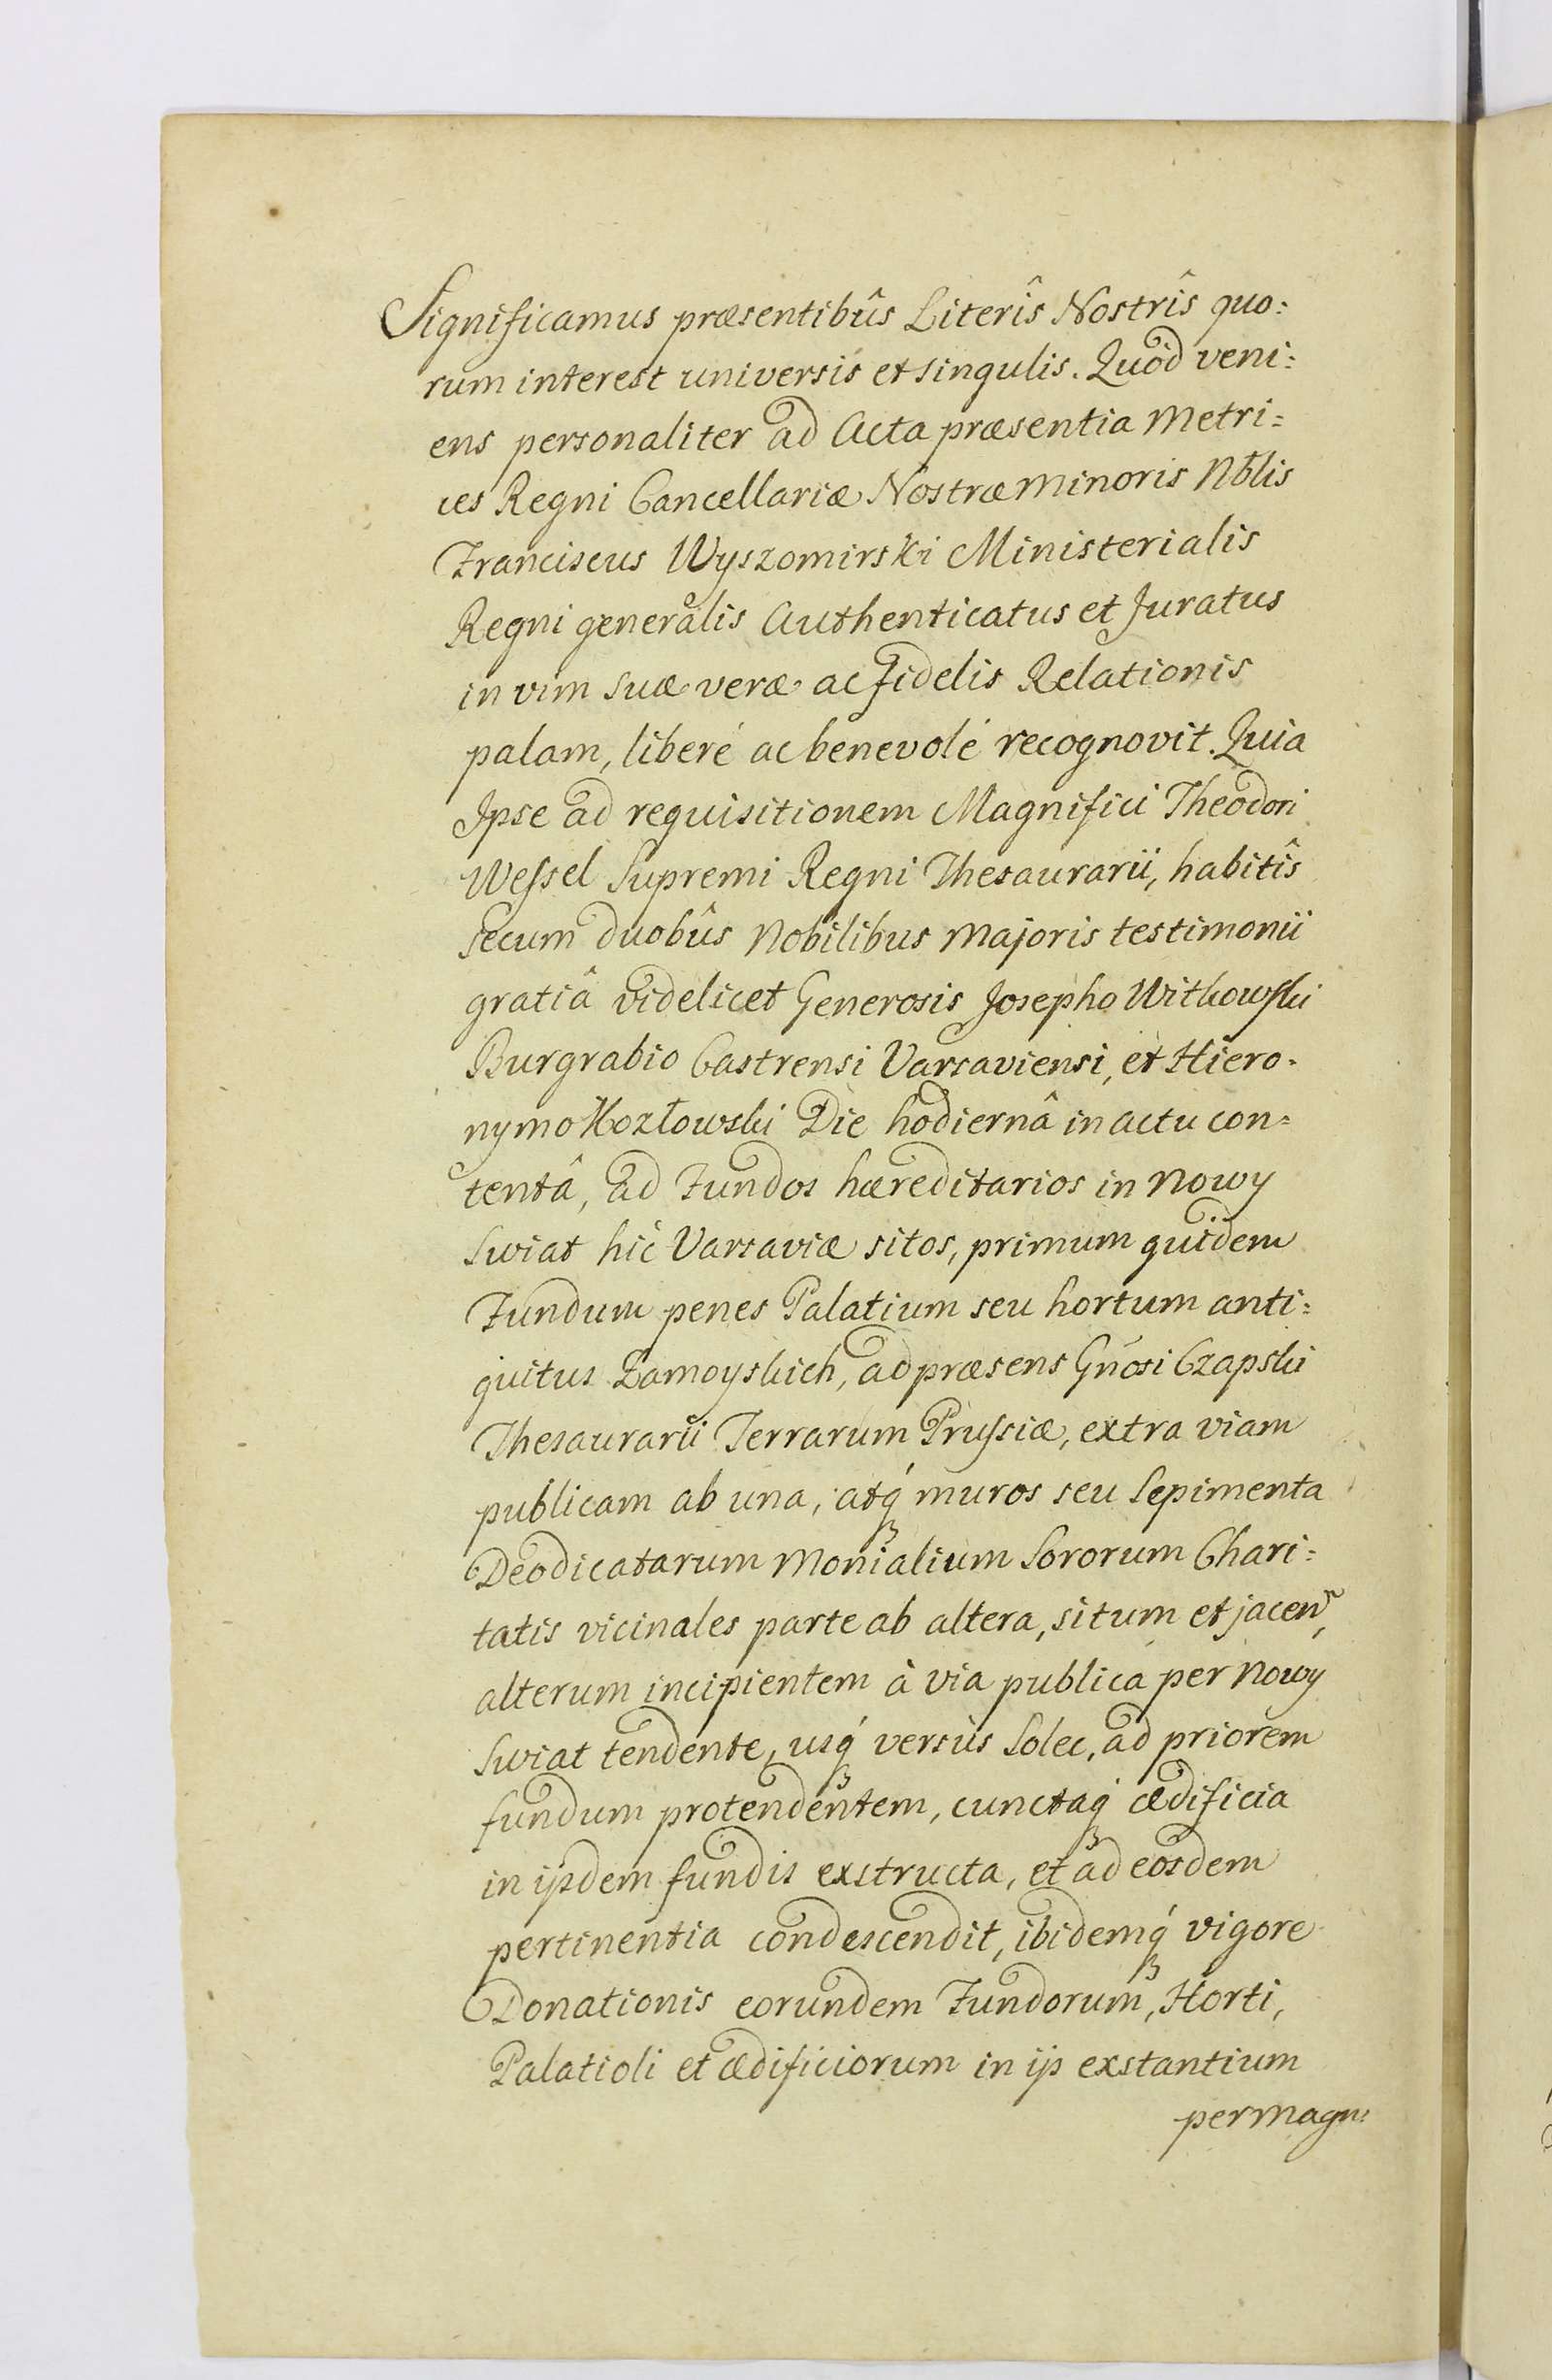 Significamus præsentibûs Literîs Nostrîs quo:
rum interest universis et singulis. Quòd veni:
ens personaliter ad Acta præsentia Metri:
ces Regni Cancellariæ Nostræ Minoris Nblis
Franciscus Wyszomirski Ministerialis
Regni generalis Authenticatus et Juratus
in vim suæ veræ ac fidelis Relationis
palam, liberé ac benevolé recognovit. Quia
Ipse ad requisitionem Magnifici Theodori
Wessel Supremi Regni Thesaurarii, habitîs
secum duobûs Nobilibus Majoris testimonii
gratiâ videlicet Generosis Josepho Witkowski
Burgrabio Castrensi Varsaviensi, et Hiero-
nymo Kozłowski Die hodiernâ in actu con=
tentâ, ad Fundos hæreditarios in Nowy
Swiat híc Varsaviæ sitos, primum quidem
Fundum penes Palatium seu hortum anti:
quitus Zamoyskich, ad præsens Gñosi Czapski
Thesaurarii Terrarum Prussiæ, extra viam
publicam ab una, atq́ muros seu Sepimenta
Deodicatarum Monialium Sororum Chari:
tatis vicinales parte ab altera, situm et jacen̄,
alterum incipientem à via publica per Nowy
Swiat tendente, usq́ versùs Solec, ad priorem
fundum protendentem, cunctaq́ ædificia
in ijsdem fundis exstructa, et ad eosdem
pertinentia condescendit, ibidemq́ vigore
Donationis eorundem Fundorum, Horti,
Palatioli et ædificiorum in ijs exstantium
per Magn: